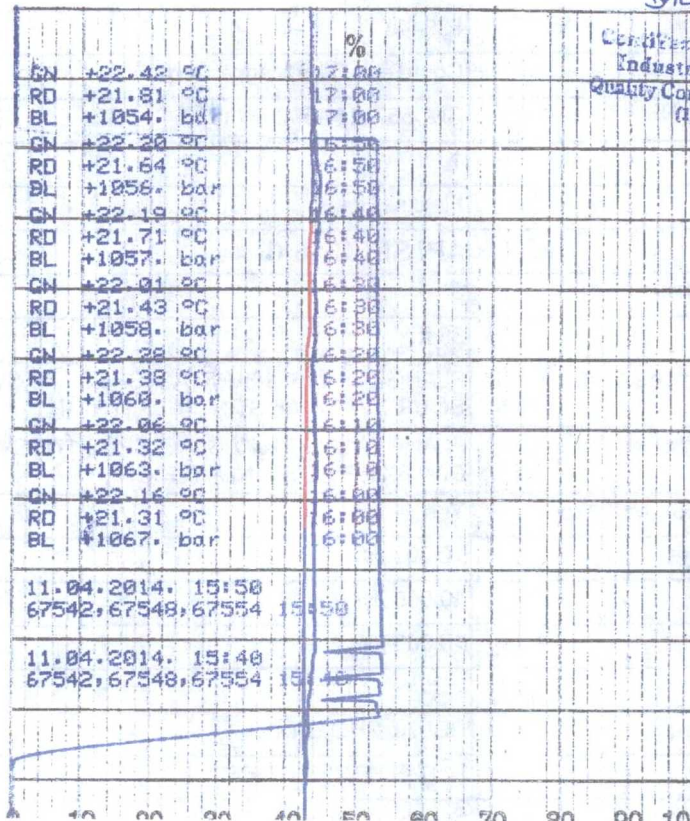 %
GN +22.42 °C 17:00
RD +21.81 °C 17:00
BL +1054. bar 17:00
GN +22.20 °C 16:50
RD +21.64 °C 16:50
BL +1056. bar 16:50
GN +22.19 °C 16:40
RD +21.71 °C 16:40
BL +1057. bar 16:40
GN +22.01 °C 16:30
RD +21.43 °C 16:30
BL +1058. bar 16:30
GN +22.28 °C 16:20
RD +21.38 °C 16:20
BL +1060. bar 16:20
GN +22.06 °C 16:10
RD +21.32 °C 16:10
BL +1063. bar 16:10
GN +22.16 °C 16:00
RD +21.31 °C 16:00
BL +1067. bar 16:00
11.04.2014. 15:50
67542,67548,67554 15:50
11.04.2014. 15:40
67542,67548,67554 15:40
0 10 20 30 40 50 60 70 80 90 10
Industr
Quality Con